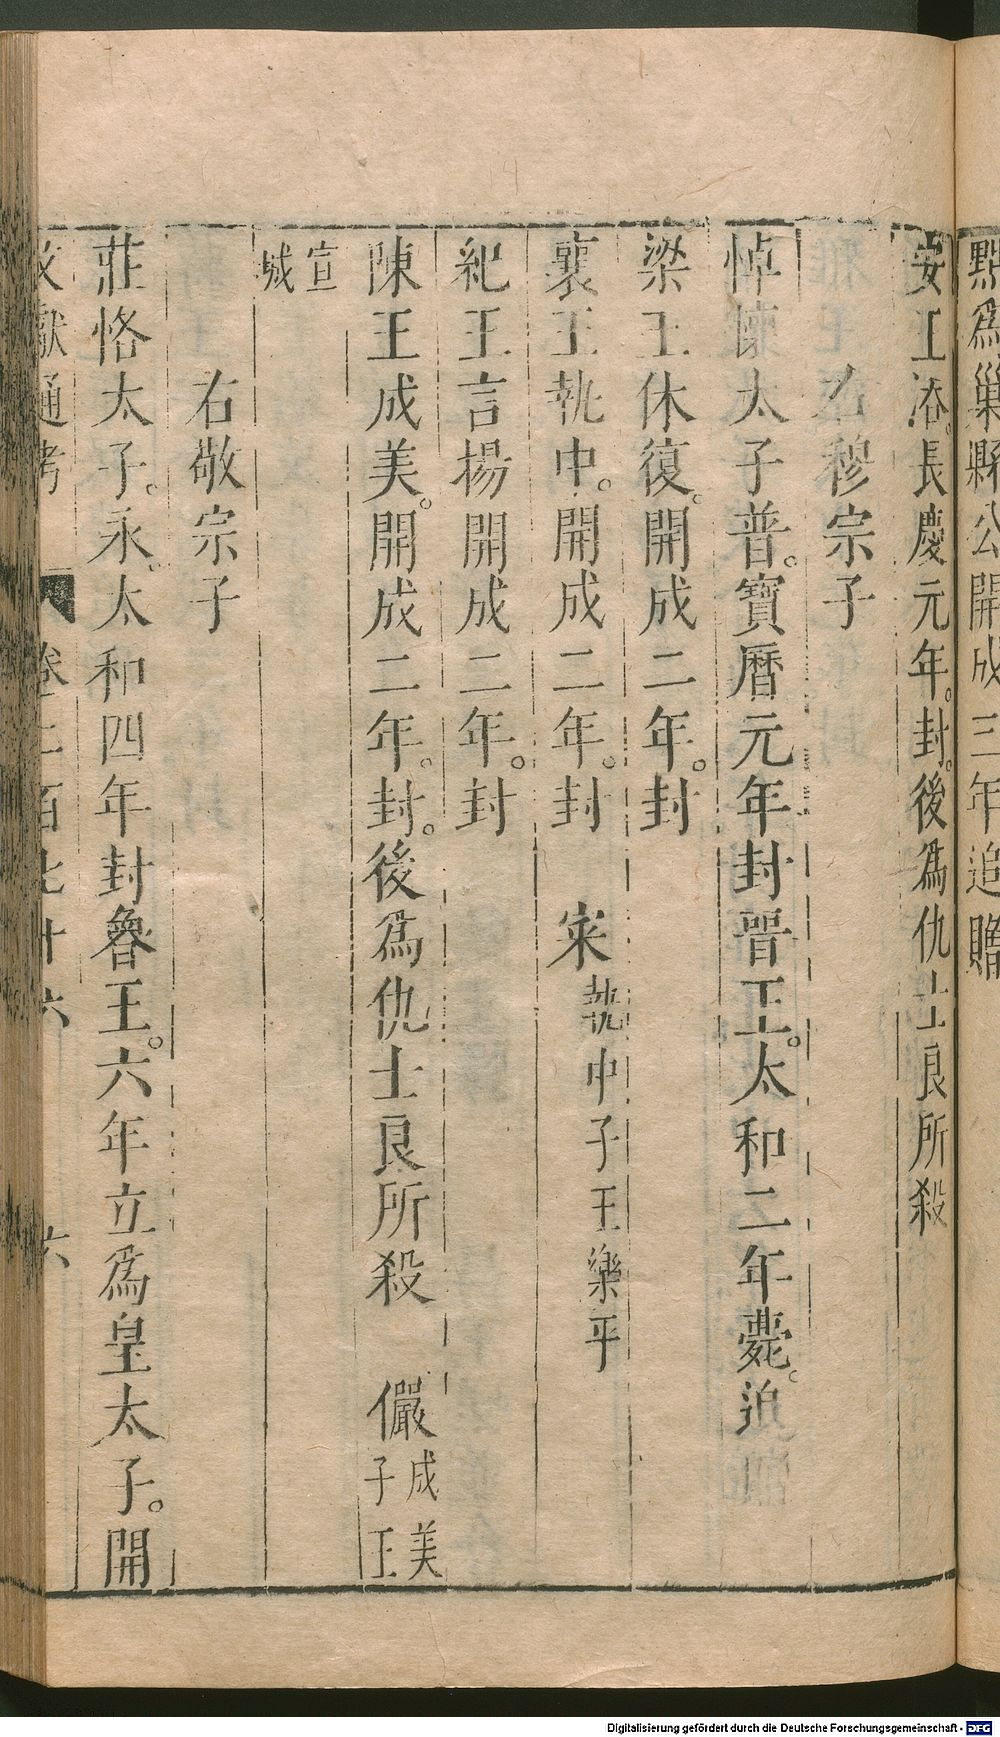 黜為巢縣公開成三年追贈
安王溶長慶元年封後爲仇士良所殺
右穆宗子
悼懷太子普寶曆元年封晉王太和二年薨追
梁王休復開成二年封
襄王執中開成二年封 寀執中子王樂平
紀王言揚開成二年封
陳王成美開成二年封後爲仇士良所殺 儼成美子王
宣城
右敬宗子
莊恪太子永太和四年封魯王六年立爲皇太子開
文獻通考 卷二百七十六 六
Digitalisierung gefördert durch die Deutsche Forschungsgemeinschaft - DFG